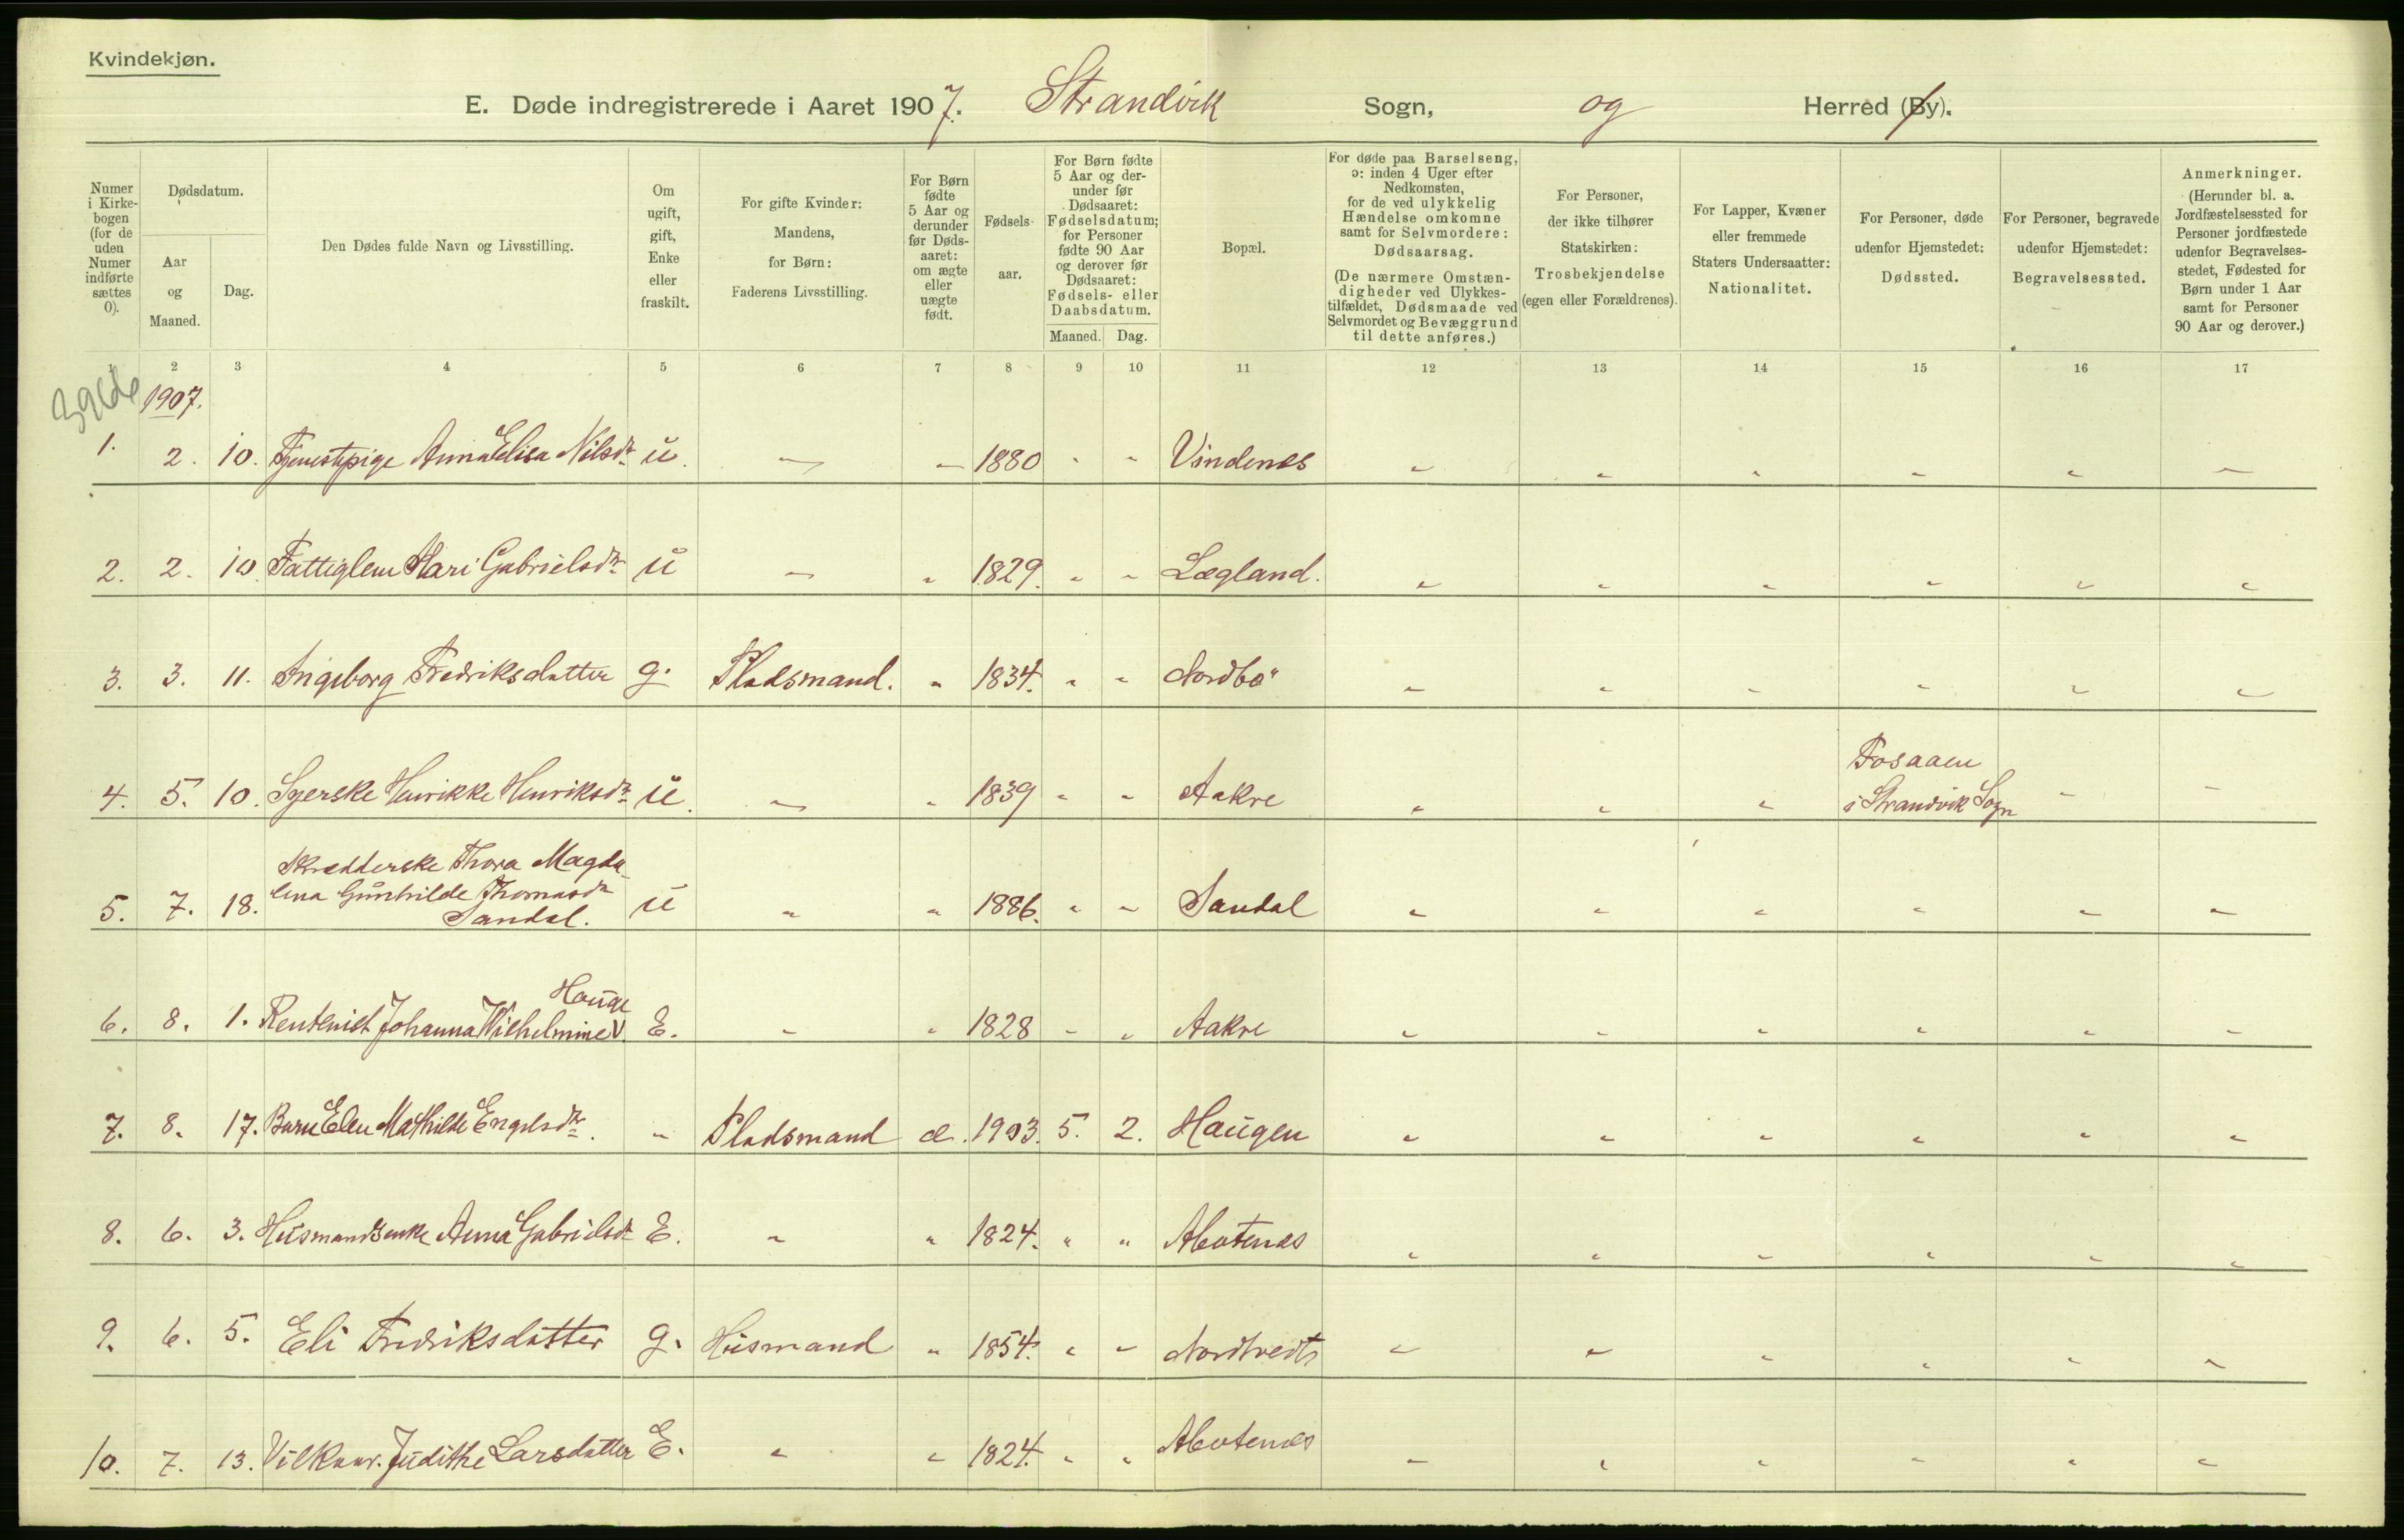 Kvindekjøn.
E. Døde indregistrerede i Aaret 1907. Strandvik Sogn, og Herred (By).
Numer i Kirkebogen (for de uden Numer indførte sættes 0).
Dødsdatum.
Aar og Maaned.
Dag.
Den Dødes fulde Navn og Livsstilling.
Om ugift, gift, Enke eller fraskilt.
For gifte Kvinder: Mandens, for Børn: Faderens Livsstilling.
For Børn fødte 5 Aar og derunder før Dødsaaret: om ægte eller uægte født.
Fødselsaar.
For Børn fødte 5 Aar og derunder før Dødsaaret: Fødselsdatum; for Personer fødte 90 Aar og derover før Dødsaaret: Fødsels- eller Daabsdatum.
Maaned. Dag.
Bopæl.
For døde paa Barselseng, ɔ: inden 4 Uger efter Nedkomsten, for de ved ulykkelig Hændelse omkomne samt for Selvmordere: Dødsaarsag.
(De nærmere Omstændigheder ved Ulykkestilfældet, Dødsmaade ved Selvmordet og Bevæggrund til dette anføres.)
For Personer, der ikke tilhører Statskirken: Trosbekjendelse (egen eller Forældrenes).
For Lapper, Kvæner eller fremmede Staters Undersaatter: Nationalitet.
For Personer, døde udenfor Hjemstedet: Dødssted.
For Personer, begravede udenfor Hjemstedet: Begravelsessted.
Anmerkninger.
(Herunder bl. a. Jordfæstelsessted for Personer jordfæstede udenfor Begravelsesstedet, Fødested for Børn under 1 Aar samt for Personer 90 Aar og derover.)
2 3 4 5 6 7 8 9 10 11 12 13 14 15 16 17
1907.
1. 2. 10. Tjenestpige Anna Elisa Nilsdr. u. - - 1880 - - Vindenes - - - - - -
2. 2. 10. Fattiglem Mari Gabrielsdr. u - - 1829. - - Lægland. - - - - - -
3. 3. 11. Ingeborg Fredriksdatter g. Pladsmand. - 1834. - - Nordbø - - - - - -
4. 5. 10. Syerske Henrikke Henriksdr. u. - - 1839 - - Aakre - - - Fosaaen
i Strandvik Sogn - -
5. 7. 18. Skredderske Thora Magda
lena Gunhilde Thomasdr
Sandal. u - - 1886. - - Sandal - - - - - -
Hauge
6. 8. 1. Rentenist Johanna Wilhelmine V. E. - - 1828 - - Aakre - - - - - -
7. 8. 17. Barn Elen Mathilde Engelsdr. - Pladsmand æ. 1903. 5. 2. Haugen - - - - - -
8. 6. 3. Husmandsenke Anna Gabrielsdr. E. - - 1824. - - - - - - - -
9. 6. 5. Eli Fredriksdatter g. Husmand - 1854. - - Nordtvedt - - - - - -
10. 7. 13. Vilkaar. Judithe Larsdatter E. - - 1824. - - - - - - - -